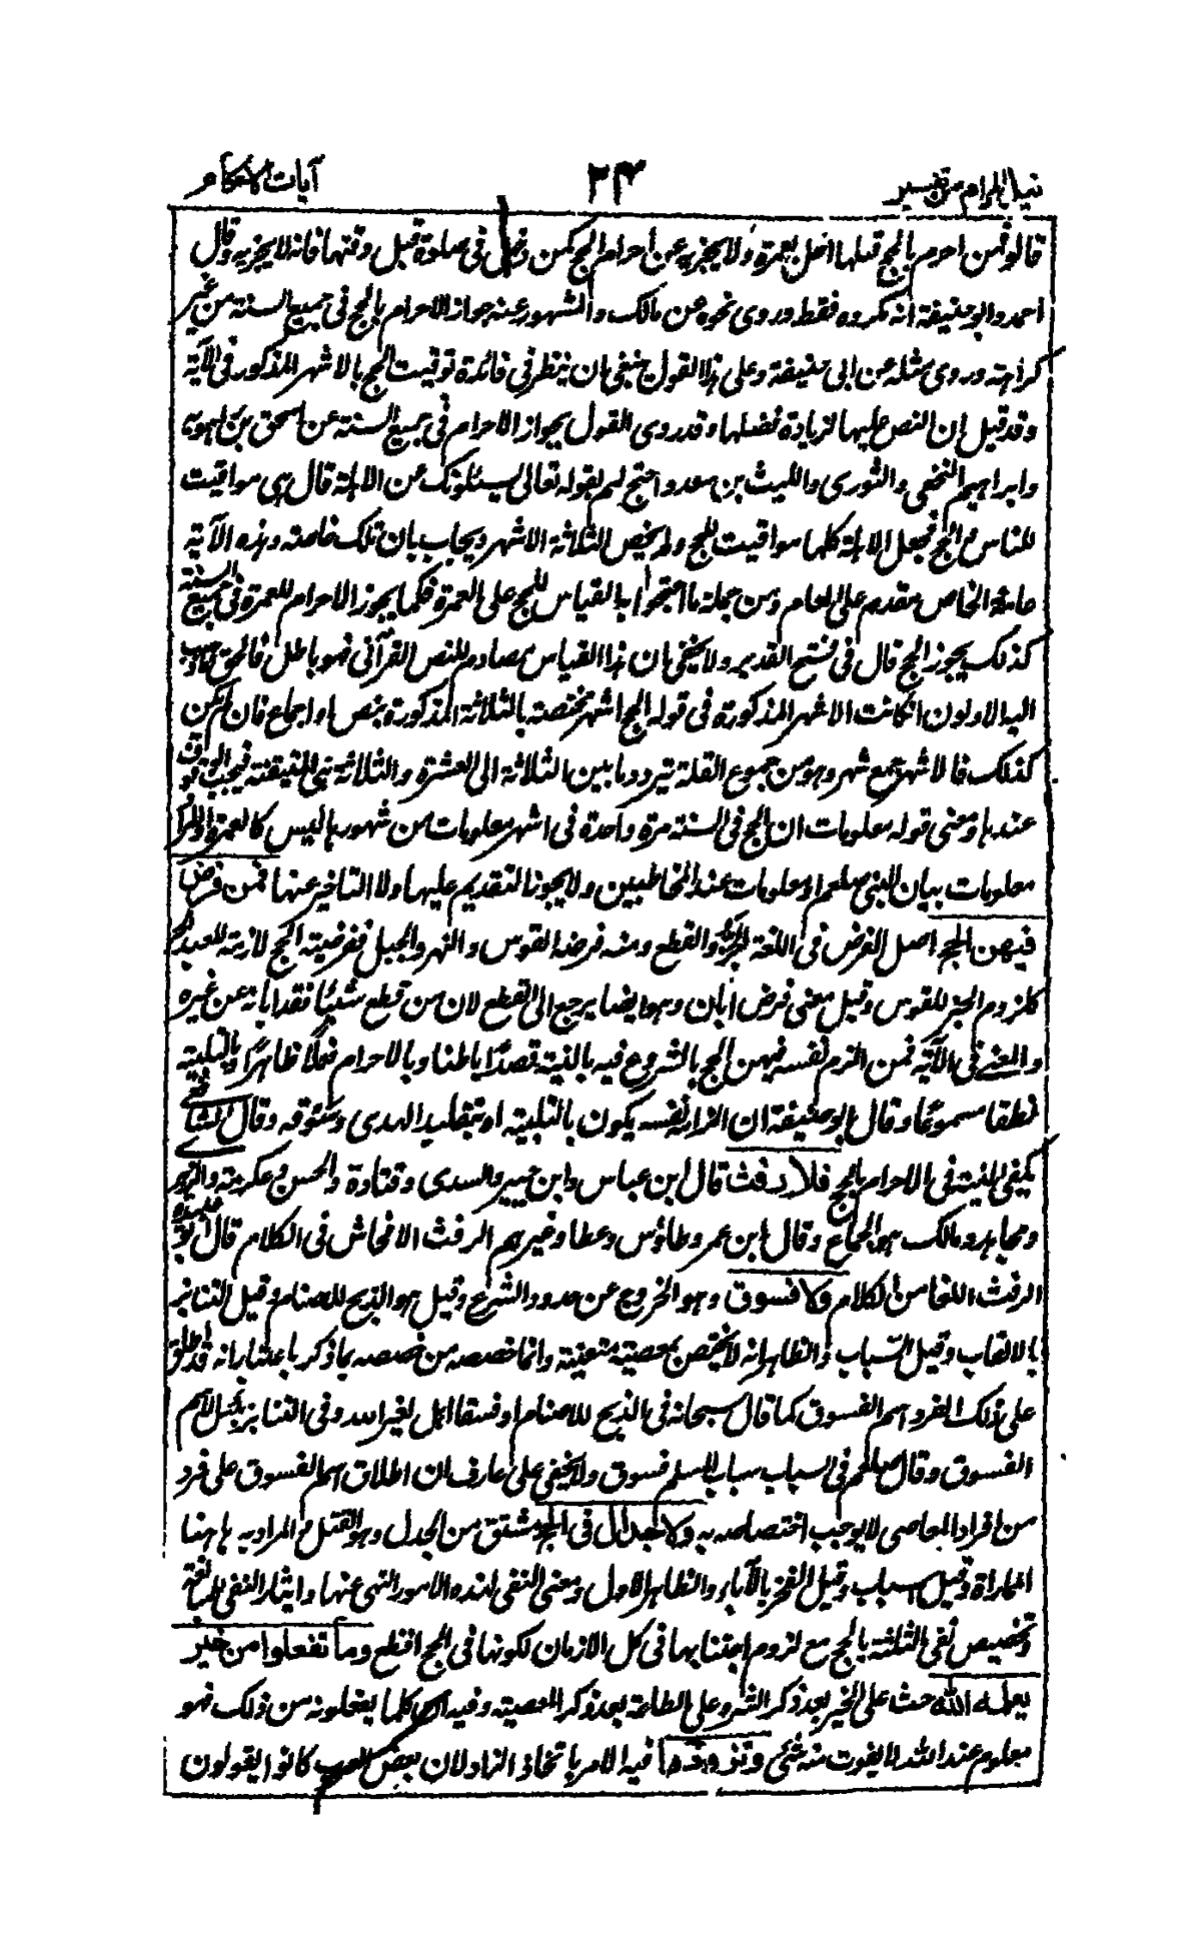 نيل المرام من تفسير ٢٣ آيات الاحكام
قالوا فمن احرم بالحج قبلها احل بعمرة ولا يجزيه عن احرام الحج كمن دخل فى صلوة قبل وقتها فانه لا يجزيه وقال
احمد وابو حنيفة انه مكروه فقط وروى نحوه عن مالك والمشهور عنه جواز الاحرام بالحج فى جميع السنة من غير
كراهة وروى مثله عن ابى حنيفة وعلى هذا القول ينبغى ان ينظر فى فائدة توقيت الحج بالاشهر المذكور فى الآية
وقد قيل ان النص عليها لزيادة فضلها وقد روى القول بجواز الاحرام فى جميع السنة عن اسحق بن راهويه
وابراهيم النخعى والثورى والليث بن سعد واحتج لهم بقوله تعالى يسئلونك عن الاهلة قال هى مواقيت
للناس والحج فجعل الاهلة كلها مواقيت للحج ولم يخص الثلاثة الاشهر ويجاب بان تلك خاصة وهذه الآية
عامة والخاص مقدم على العام ومن جملة ما احتجوا به القياس للحج على العمرة فكما يجوز الاحرام للعمرة فى جميع السنة
كذلك يجوز الحج قال فى فتح القدير ولا يخفى ان هذا القياس مصادم للنص القرآنى فهو باطل فالحق ما ذهب
اليه الاولون ان كانت الاشهر المذكورة فى قوله الحج اشهر مختصة بالثلاثة المذكورة بنص او اجماع فان لم يكن
كذلك فالاشهر جمع شهر وهو من جموع القلة يتردد ما بين الثلاثة الى العشرة والثلاثة هى المتيقنة فيجب الوقوف
عندها ومعنى قوله معلومات ان الحج فى السنة مرة واحدة فى اشهر معلومات من شهورها ليس كالعمرة او المراد
معلومات ببيان النبى صلعم او معلومات عند المخاطبين ولا يجوز التقديم عليها ولا التاخير عنها فمن فرض
فيهن الحج اصل الفرض فى اللغة الحز والقطع ومنه فرضة القوس والنهر والجبل ففرضية الحج لازمة للعبد الحر
كلزوم الحز للقوس وقيل معنى فرض ابان وهو ايضا يرجع الى القطع لان من قطع شيئا فقد ابانه عن غيره
والمعنے فى الآية فمن الزم نفسه فيهن الحج بالشروع فيه بالنية قصدًا باطنا وبالاحرام فعلًا ظاهرًا وبالتلبية
نطقا مسموعًا وقال ابو حنيفة ان الزامه نفسه يكون بالتلبية او بتقليد الهدى وسَوقه وقال الشافعے
يكفى النية فى الاحرام بالحج فلا رفث قال ابن عباس وابن جبير والسدى وقتادة والحسن وعكرمة والزهرى
ومجاهد ومالك هو الجماع وقال ابن عمر وطاؤس وعطا وغيرهم الرفث الافحاش فى الكلام قال ابو عبيدة
الرفث اللغا من الكلام ولا فسوق وهو الخروج عن حدود الشرع وقيل هو الذبح للاصنام وقيل التنابز
بالالقاب وقيل السباب والظاهر انه لا يختص بمعصية متعينة وانما خصصه من خصصه بما ذكر باعتبار انه قد اطلق
على ذلك الفرد اسم الفسوق كما قال سبحانه فى الذبح للاصنام او فسقا اهل لغير الله وفى التنابز بئس الاسم
الفسوق وقال صلعم فى السباب سباب المسلم فسوق ولا يخفى على عارف ان اطلاق اسم الفسوق على فرد
من افراد المعاصى لا يوجب اختصاصه به ولا جدال فى الحج مشتق من الجدل وهو الفتل والمراد به ههنا
المماراة وقيل السباب وقيل الفخر بالآباء والظاهر الاول ومعنى النفى لهذه الامور النهى عنها وايثار النفى للمبالغة
وتخصيص نفى الثلثة بالحج مع لزوم اجتنابها فى كل الازمان لكونها فى الحج افظع وما تفعلوا من خير
يعلمه الله حث على الخير بعد ذكر الشر وعلى الطاعة بعد ذكر المعصية وفيه ان كلما يفعلونه من ذلك فهو
معلوم عند الله لا يفوت منه شئ وتزودوا فيه الامر باتخاذ الزاد لان بعض العرب كانوا يقولون